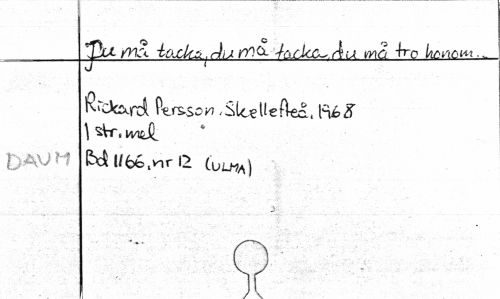 Du må tacka, du må tacka, du må tro honom...
Rickard Persson. Skellefteå. 1968
1 str. mel
DAUM Bd 1166. nr 12 (ULMA)